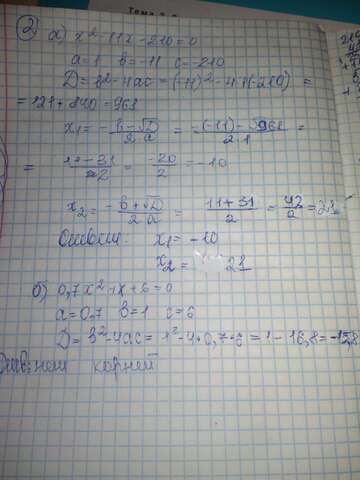 2 а) x² - 11x - 210 = 0
a = 1 b = -11 c = -210
D = b² - 4ac = (-11)² - 4·1·(-210) =
= 121 + 840 = 961
x₁ = -b - √D / 2a = -(-11) - √961 / 2·1 =
= 11 - 31 / 2 = -20 / 2 = -10
x₂ = -b + √D / 2a = 11 + 31 / 2 = 42 / 2 = 21
Ответ: x₁ = -10
x₂ = 21
б) 0,7x² + 1x + 6 = 0
a = 0,7 b = 1 c = 6
D = b² - 4ac = 1² - 4·0,7·6 = 1 - 16,8 = -15,8
Ответ: нет корней